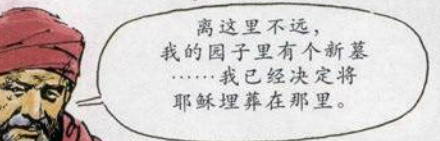 离这里不远，
我的园子里有个新墓
……我已经决定将
耶稣埋葬在那里。